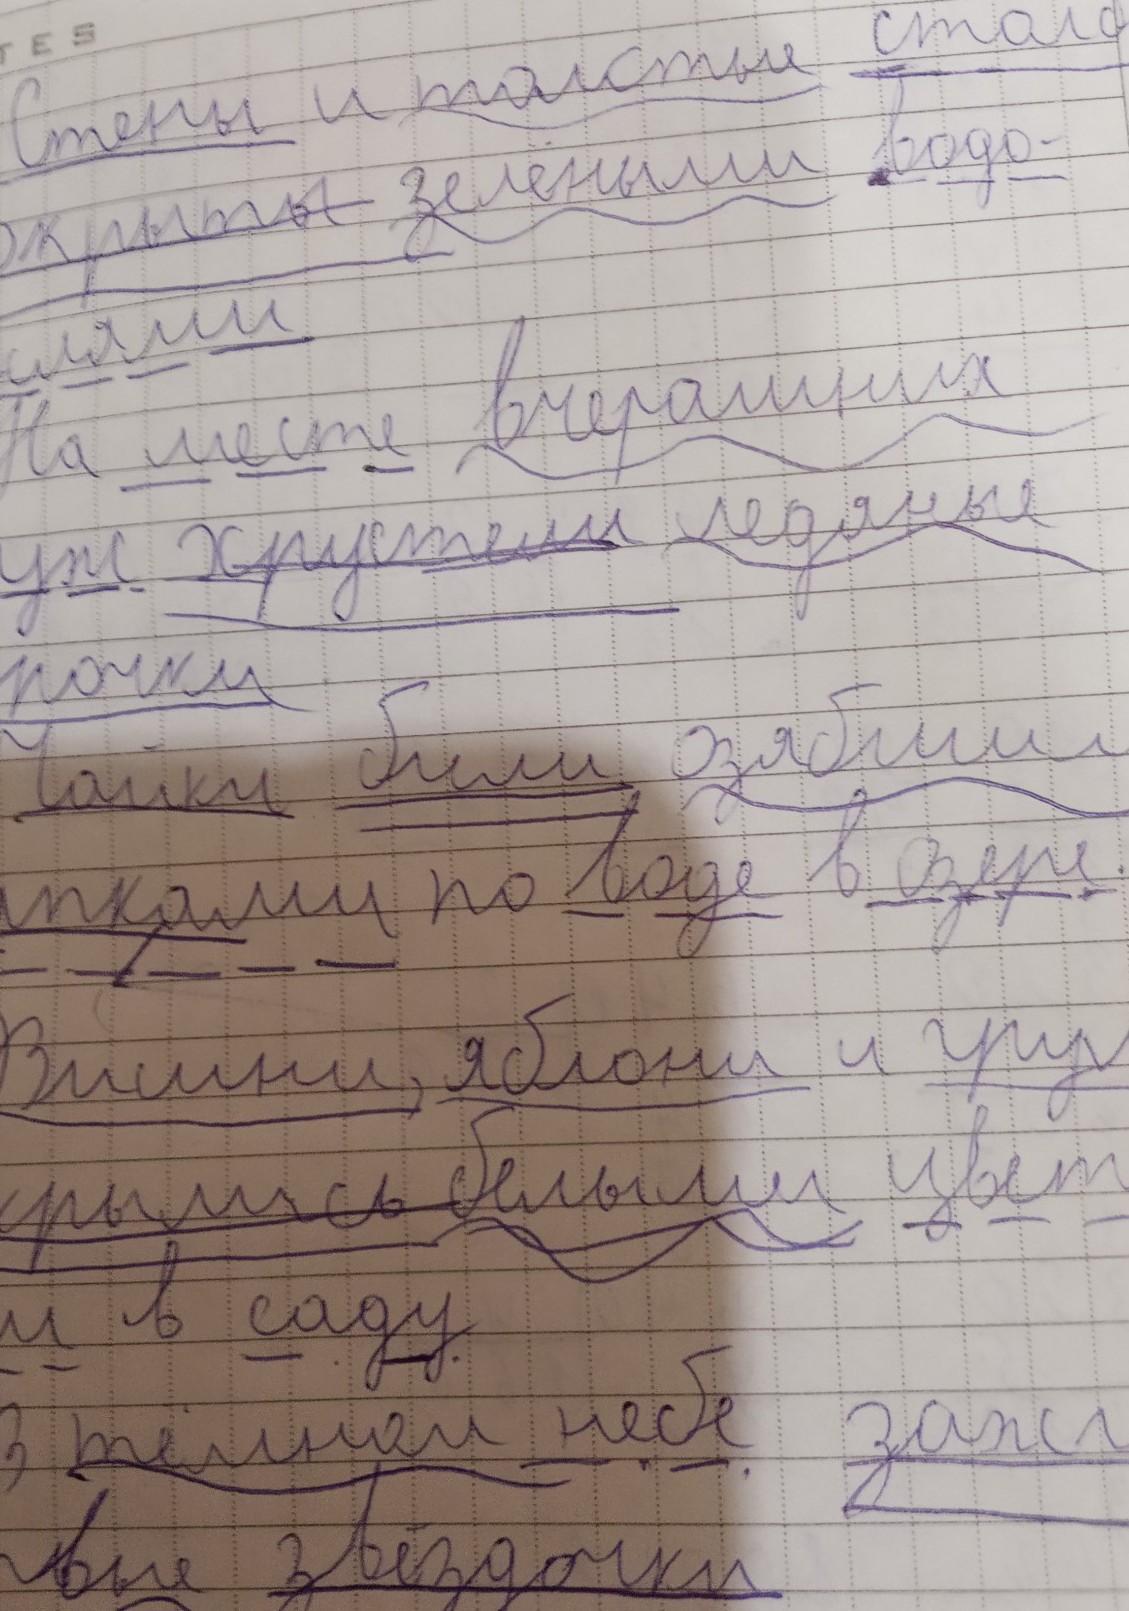 TES
Стены и толстые стол
окрыты зелёными водо-
слями
На месте вчерашних
уж хрустели ледяные
рочки
Чайки били озябшими
апками по воде в озере.
Вишни, яблони и груш
крылись белыми цвет
ми в саду.
В тёмном небе зажг
вые звёздочки